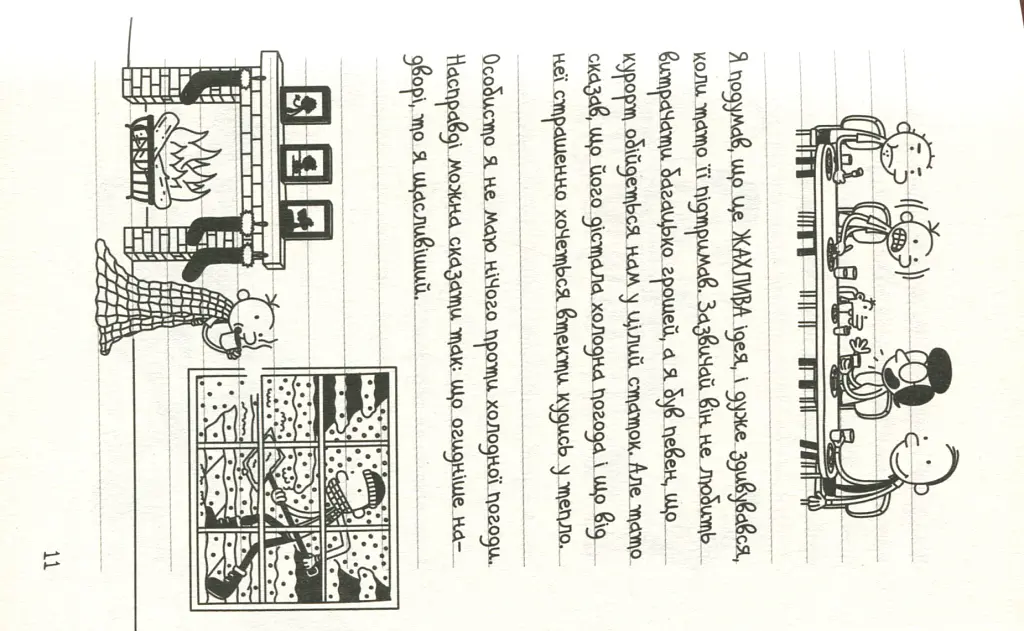 Я подумав, що це ЖАХЛИВА ідея, і дуже здивувався,
коли тато її підтримав. Зазвичай він не любить
витрачати багацько грошей, а я був певен, що
курорт обійдеться нам у цілий статок. Але тато
сказав, що його дістала холодна погода і що від
неї страшенно хочеться втекти кудись у тепло.
Особисто я не маю нічого проти холодної погоди.
Насправді можна сказати так: що огидніше на-
дворі, то я щасливіший.
11